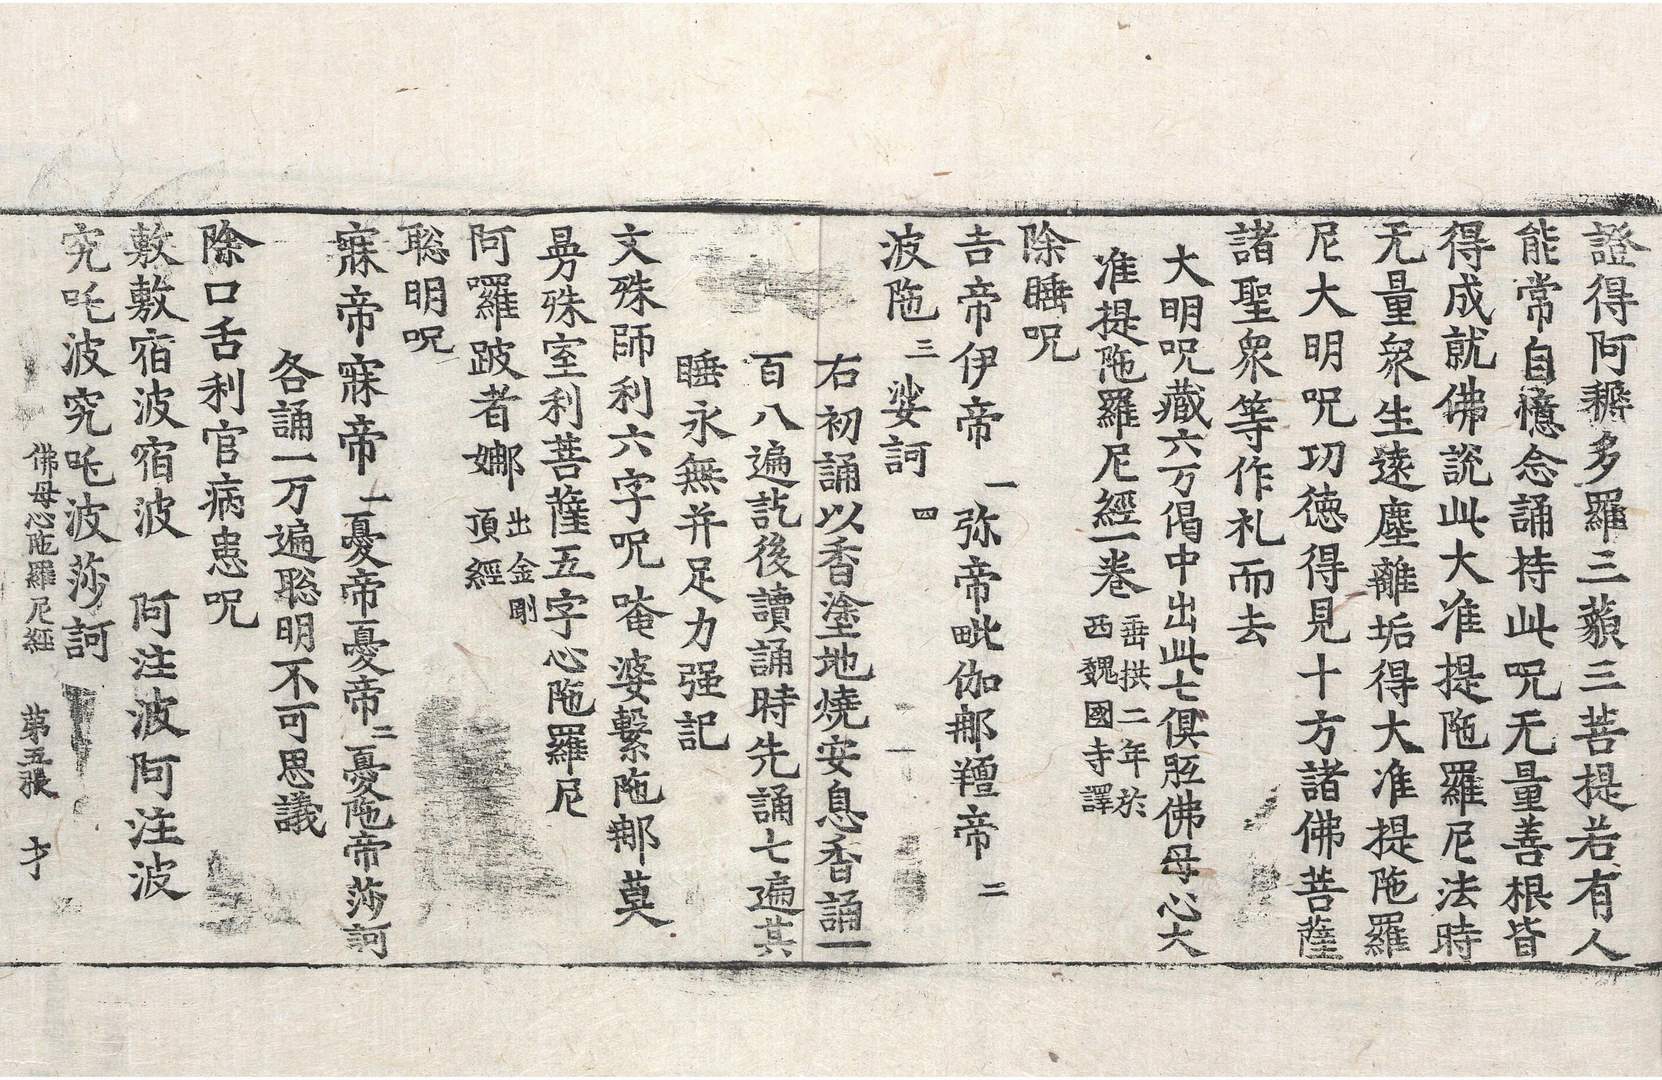 證得阿耨多羅三藐三菩提若有人
能常自憶念誦持此呪无量善根皆
得成就佛說此大准提陁羅尼法時
无量衆生遠塵離垢得大准提陁羅
尼大明呪功德得見十方諸佛菩薩
諸聖衆等作礼而去
大明呪藏六万偈中出此七俱胝佛母心大
准提陁羅尼經一卷 垂拱二年於
西魏國寺譯
除睡呪
吉帝伊帝 一 弥帝毗伽那羶帝 二
波陁 三 娑訶 四
右初誦以香塗地燒安息香誦一
百八遍訖後讀誦時先誦七遍其
睡永無并足力强記
文殊師利六字呪唵婆繫陁那莫
曼殊室利菩薩五字心陁羅尼
阿囉跛者娜 出金剛
頂經
聡明呪
寐帝寐帝 一 憂帝憂帝 二 憂陁帝莎訶
各誦一万遍聡明不可思議
除口舌利官病患呪
敷敷宿波宿波 阿注波阿注波
究吒波究吒波莎訶
佛母心陁羅尼經 苐五張 才